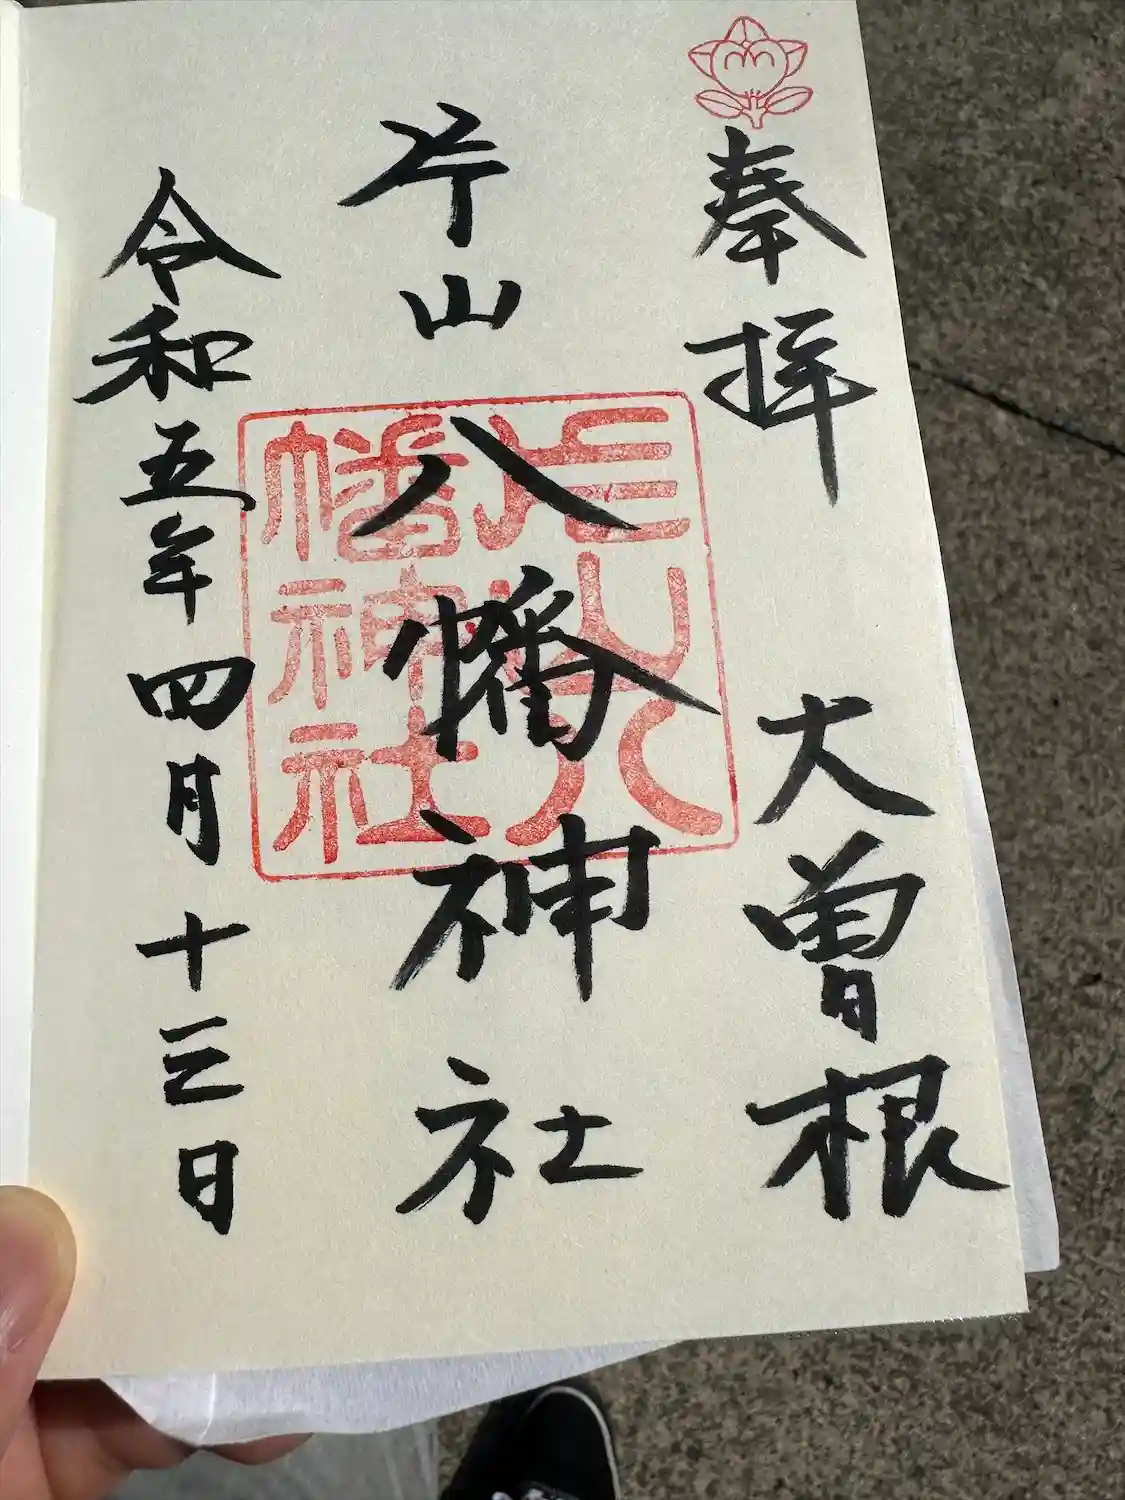 奉拝 大曽根
片山八幡神社
令和五年四月十三日
片山八
幡神社